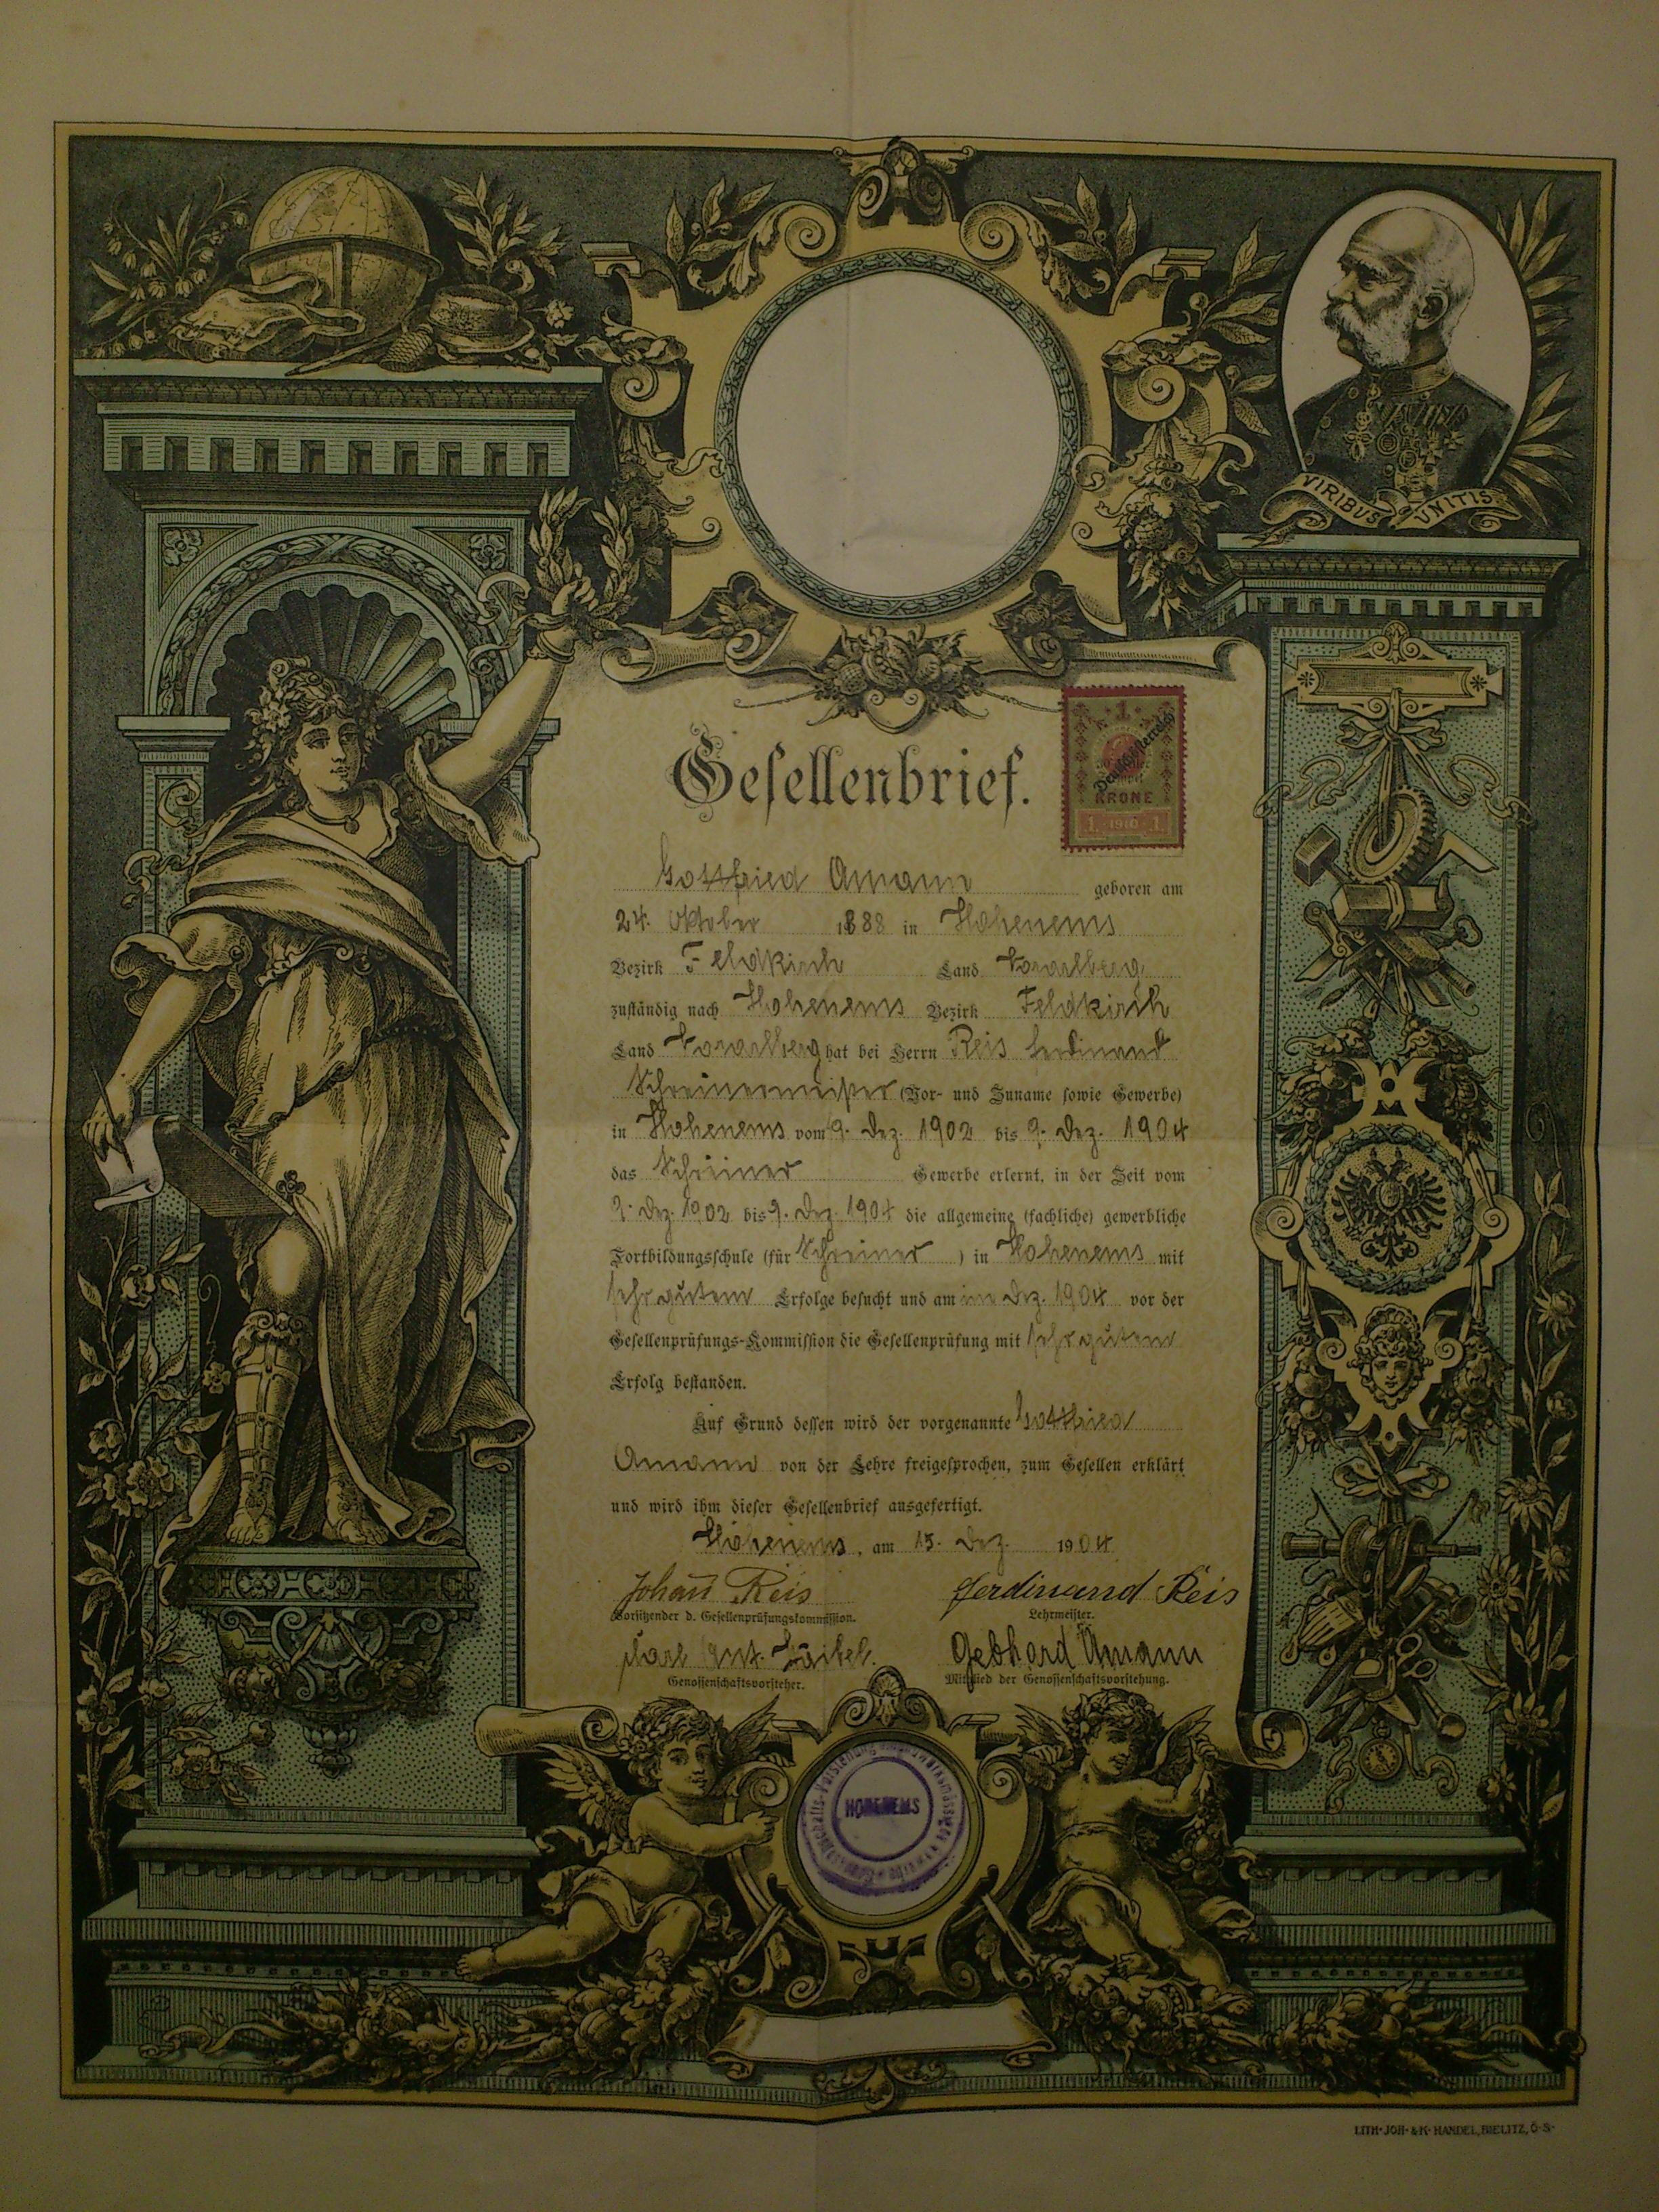 VIRIBUS UNITIS
Gesellenbrief.
1
Deutschösterreich
KRONE
1 1910 1
Gottfried Amann geboren am
24. Oktober 1888 in Hohenems
Bezirk Feldkirch Land Vorarlberg
zuständig nach Hohenems Bezirk Feldkirch
Land Vorarlberg hat bei Herrn Reis Ferdinand
Schreinermeister (Vor- und Zuname sowie Gewerbe)
in Hohenems vom 9. Dez. 1902 bis 9. Dez. 1904
das Schreiner Gewerbe erlernt, in der Zeit vom
9. Dez. 1902 bis 9. Dez. 1904 die allgemeine (fachliche) gewerbliche
Fortbildungsschule (für Schreiner ) in Hohenems mit
sehr gutem Erfolge besucht und am im Dez. 1904 vor der
Gesellenprüfungs-Kommission die Gesellenprüfung mit sehr gutem
Erfolg bestanden.
Auf Grund dessen wird der vorgenannte Gottfried
Amann von der Lehre freigesprochen, zum Gesellen erklärt
und wird ihm dieser Gesellenbrief ausgefertigt.
Hohenems, am 15. Dez. 1904
Johann Reis Ferdinand Reis
Vorsitzender d. Gesellenprüfungskommission. Lehrmeister.
Karl Ant. Gebhard Amann
Genossenschaftsvorsteher. Mitglied der Genossenschaftsvorstehung.
HOHENEMS
LITH. JOH. & K. HANDEL, BIELITZ, Ö.S.